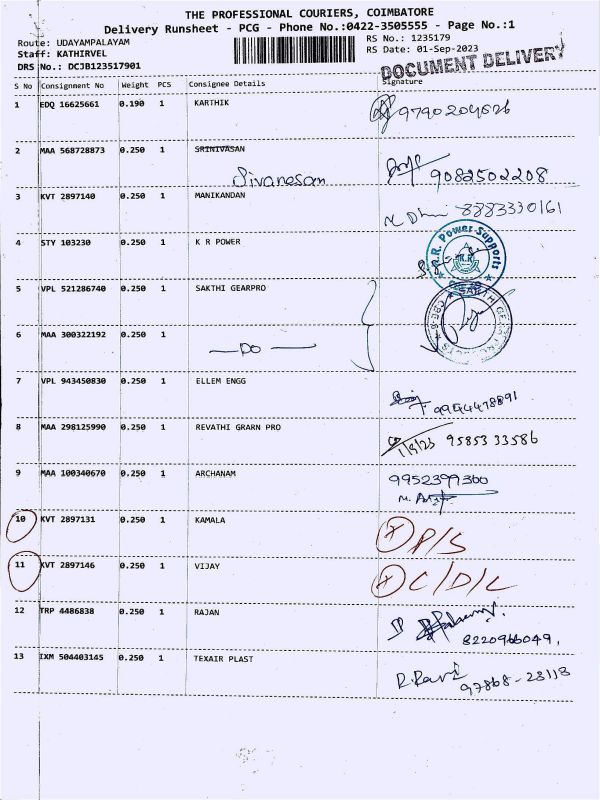 THE PROFESSIONAL COURIERS, COIMBATORE
Delivery Runsheet - PCG - Phone No.:0422-3505555 - Page No.:1
Route: UDAYAMPALAYAM RS No.: 1235179
Staff: KATHIRVEL RS Date: 01-Sep-2023
DRS No.: DCJB123517901
DOCUMENT DELIVERY
S No Consignment No Weight PCS Consignee Details Signature
1 EDQ 16625661 0.190 1 KARTHIK
9790204626
2 MAA 568728873 0.250 1 SRINIVASAN
Sivanesam 9082502208
3 KVT 2897140 0.250 1 MANIKANDAN
8883330161
4 STY 103230 0.250 1 K R POWER
Power Supports
5 VPL 521286740 0.250 1 SAKTHI GEARPRO
6 MAA 300322192 0.250 1
—DO—
7 VPL 943450830 0.250 1 ELLEM ENGG
9944478891
8 MAA 298125990 0.250 1 REVATHI GRARN PRO
1/9/23 95853 33586
9 MAA 100340670 0.250 1 ARCHANAM
9952399300
10 KVT 2897131 0.250 1 KAMALA
P/S
11 KVT 2897146 0.250 1 VIJAY
C/D/L
12 TRP 4486838 0.250 1 RAJAN
8220966049,
13 IXM 504403145 0.250 1 TEXAIR PLAST
R.Ravi
97868-23113